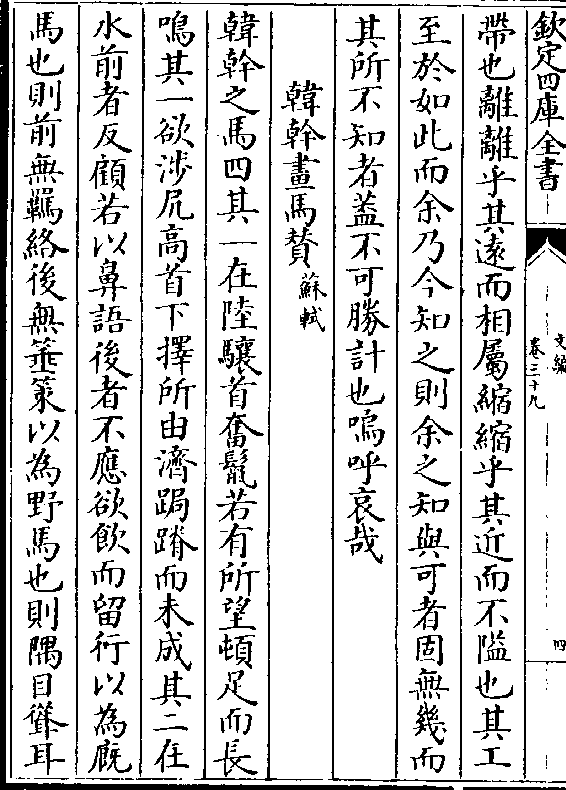 欽定四庫全書
文編
卷三十九
四
帶也離離乎其遠而相屬縮縮乎其近而不隘也其工
至於如此而余乃今知之則余之知與可者固無幾而
其所不知者葢不可勝計也嗚呼哀哉
韓幹畫馬贊蘇軾
韓幹之馬四其一在陸驤首奮鬛若有所望頓足而長
鳴其一欲涉尻高首下擇所由濟跼蹐而未成其二在
水前者反顧若以鼻語後者不應欲飲而留行以為廐
馬也則前無羈絡後無箠策以為野馬也則隅目聳耳